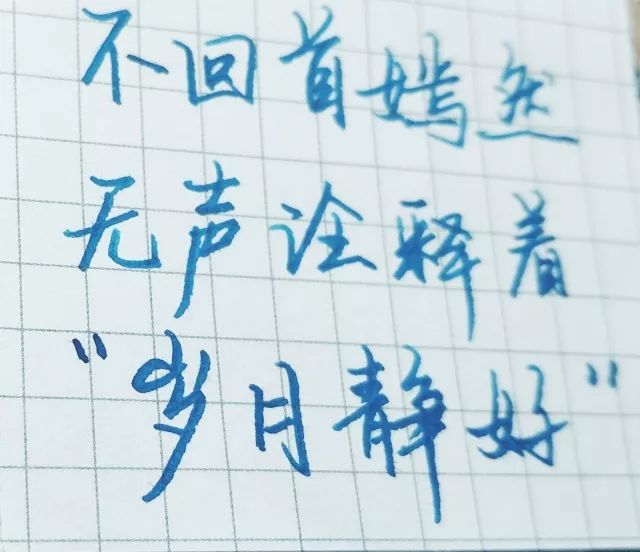 不回首嫣然
无声诠释着
"岁月静好"